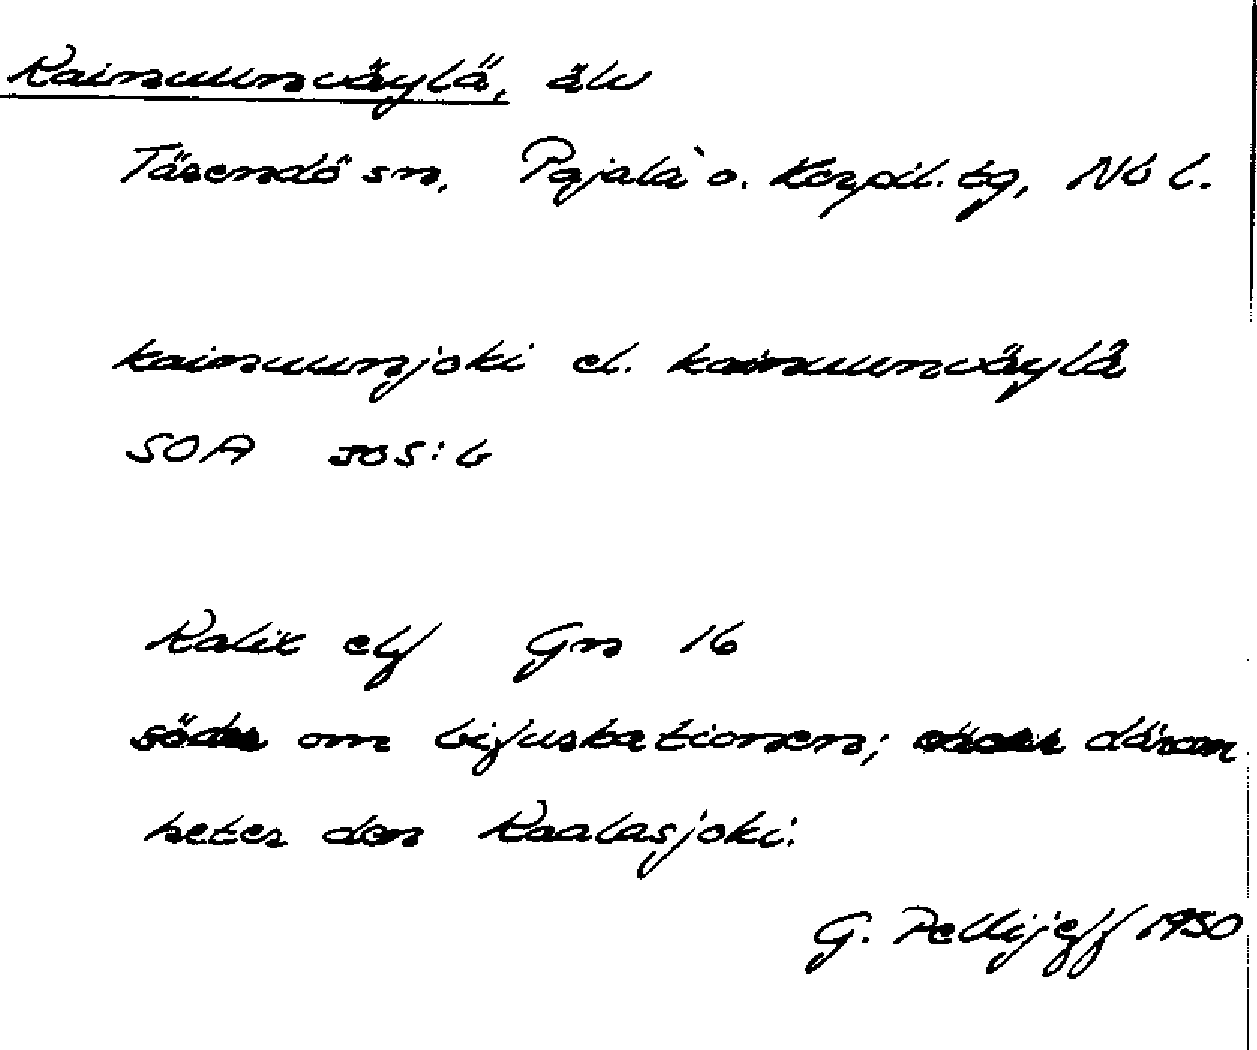 Kainuunväylä, älv
Tärendö sn, Pajala o. Korpil. tg, Nb l.
kainuunjoki el. kainuunväylä
SOA 305:6
Kalix elf Gn 16
söder om bifurkationen; därom
heter den Kaalasjoki.
G. Pellijeff 1950